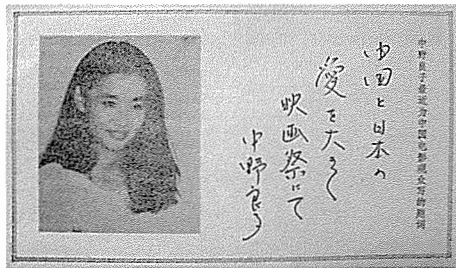 中野良子最近为中国电影观众写的题词
中国と日本の
愛を大きく
映画祭にて
中野良子